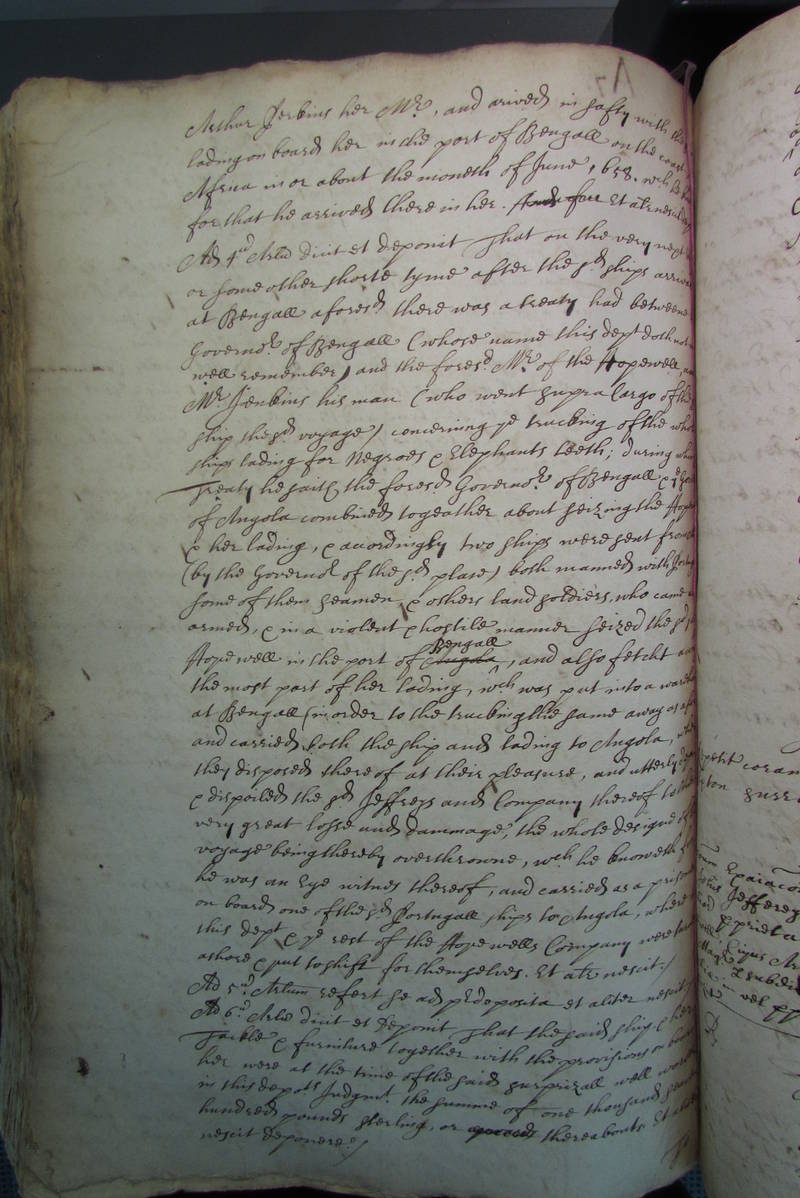 Arthur Jenkins her Mr, and arived in safty with the
lading on board her in the port of Bengall on the coast
Africa in or about the moneth of June 1658. wch he
for that he arrived there in her. And fur Et alr nescit
Ad 4um Arlum dicit et deponit That on the very next
or some other shorte tyme after the sd ships arrivall
at Bengall aforesd there was a treaty had betweene
Governor of Bengall (whose name this dept doth not
well remember) and the foresd Mr of the Hopewell, and
Mr Jenkins his man (who went supra Cargo of the
ship the sd voyage) concerning ye trucking of the whole
ships lading for Negroes & Elephants teeth; during which
treaty he saith the foresd Governor of Bengall & ye
of Angola combined togeather about seizing the Hopewell
& her lading, & accordingly two ships were sent from
(by the Governor of the sd place) both manned with
some of them seamen & others land soldiers, who came
armed, & in a violent & hostile manner seized the sd
Hopewell in the port of Angola Bengall, and also fetcht away
the most part of her lading, wch was put into a warehouse
at Bengall (in order to the trucking the same away as
and carried both the ship and lading to Angola, where
they disposed thereof at their pleasure, and utterly
& dispoiled the sd Jeffreys and Company thereof to their
very great losse and dammage, the whole designe of the
voyage being thereby overthrowne, wch he knoweth for
he was an Eye witnes thereof, and carried as a prisoner
on board one of the sd Portugall ships to Angola, where
this dept & ye rest of the Hopewells Company were turned
ashore & put to shift for themselves. Et alr nescit./
Ad 5um Arlum refert se ad predeposita et aliter nescit
Ad 6um Arlum dicit et deponit That the said ship & her
Tackle & furniture together with the provisions on board
her were at the time of the said surprizall well worth
in this depts Judgmt. the summe of one thousand
hundred pounds sterling, or thereabouts Et
nescit deponere./
petit coram
Jefferey